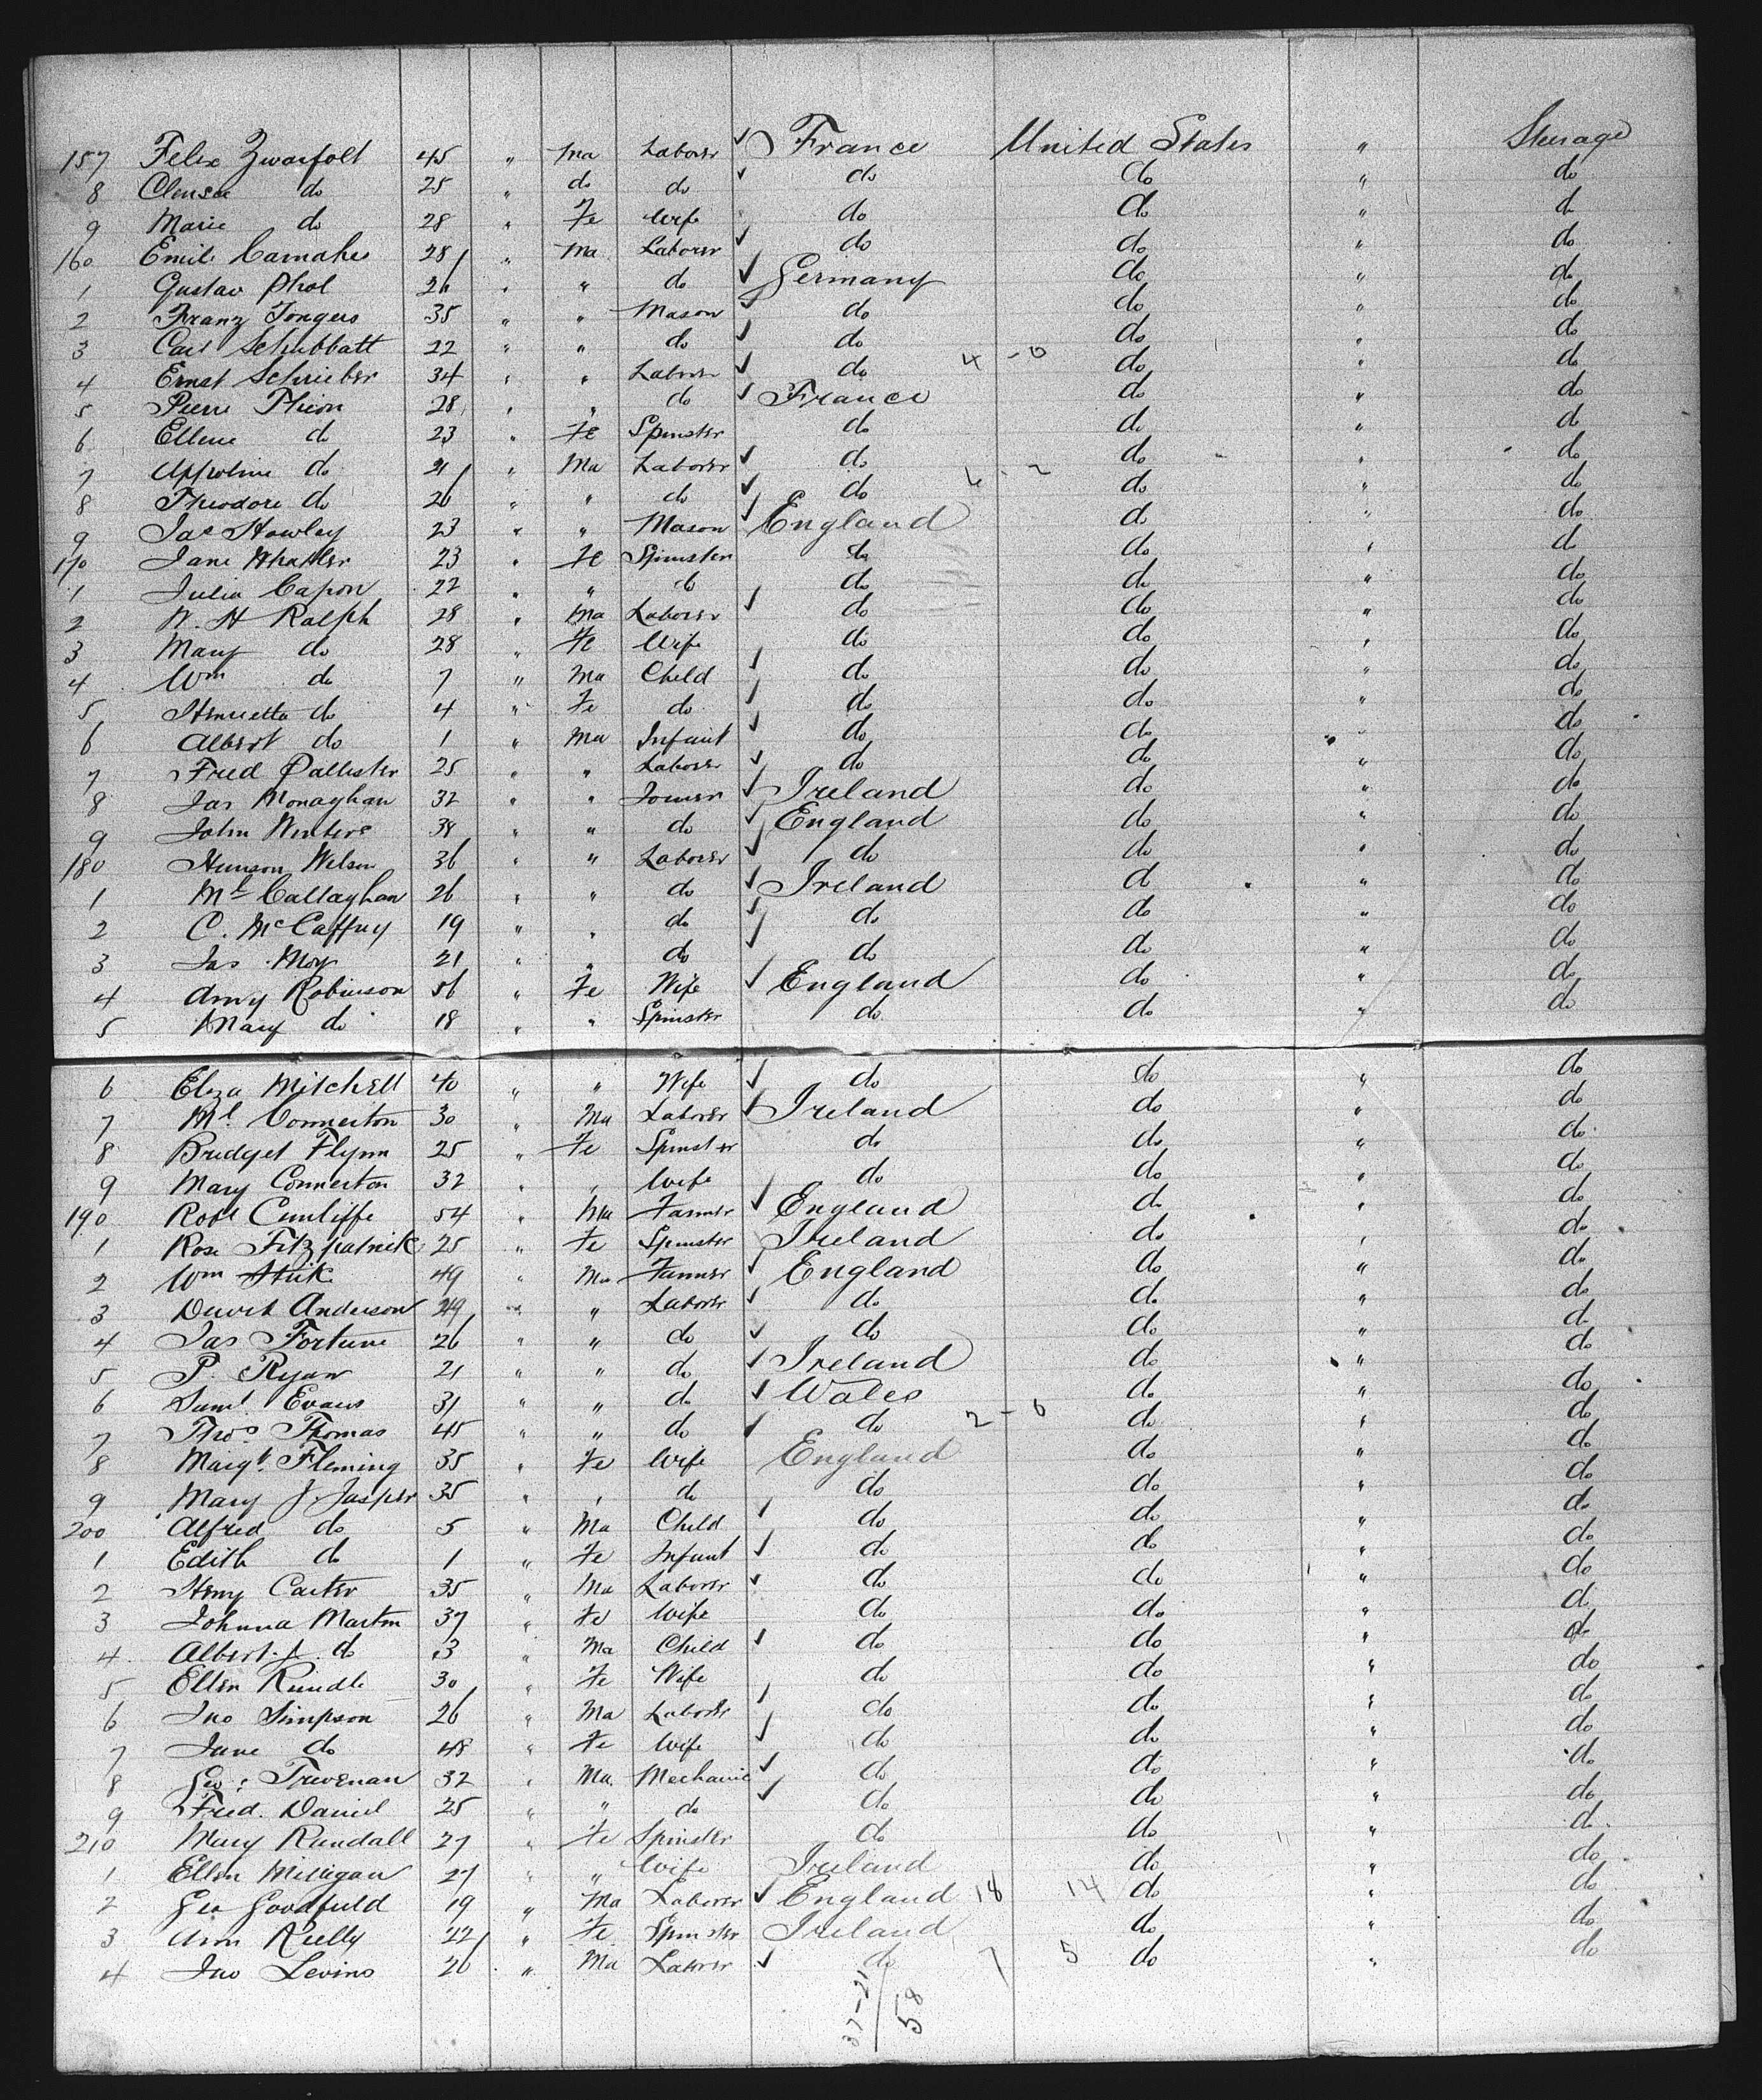 157 Felix Zwarfolt 45 " Ma Laborer ✓ France United States " Steerage
8 Clensce do 25 " do do ✓ do do " do
9 Marie do 28 " Fe Wife do do " do
160 Emile Carnahes 28 " Ma Laborer ✓ do do " do
1 Gustav Phol 26 " " do ✓ Germany do " do
2 Franz Tongers 35 " " Mason ✓ do do " do
3 Carl Schubbatt 22 " " do ✓ do do " do
4 Ernst Schrieber 34 " " Laborer ✓ do 4 - 0 do " do
5 Pierre Thion 28 " " do ✓ France do " do
6 Ellene do 23 " Fe Spinster do do " do
7 Appoline do 21 " Ma Laborer ✓ do do " do
8 Theodore do 26 " " do ✓ do 6 - 2 do " do
9 Jas Howley 23 " " Mason ✓ England do " do
170 Jane Whatler 23 " Fe Spinster do do " do
1 Julia Capon 22 " " do do do " do
2 W. H Ralph 28 " Ma Laborer ✓ do do " do
3 Mary do 28 " Fe Wife do do " do
4 Wm do 7 " Ma Child ✓ do do " do
5 Henrietta do 4 " Fe do ✓ do do " do
6 Albert do 1 " Ma Infant ✓ do do " do
7 Fred Pallister 25 " " Laborer ✓ do do " do
8 Jas Monaghan 32 " " Joiner ✓ Ireland do " do
9 John Winters 38 " " do ✓ England do " do
180 Hunson Wilson 36 " " Laborer ✓ do do " do
1 Ml Callaghan 26 " " do ✓ Ireland do " do
2 C. McCaffry 19 " " do ✓ do do " do
3 Jas Moy 21 " " do ✓ do do " do
4 Amy Robinson 56 " Fe Wife ✓ England do " do
5 Mary do 18 " " Spinster do do " do
6 Eliza Mitchell 40 " " Wife ✓ do do " do
7 Ml Connerton 30 " Ma Laborer ✓ Ireland do " do
8 Bridget Flynn 25 " Fe Spinster do do " do
9 Mary Connerton 32 " " Wife do do " do
190 Robt Cunliffe 54 " Ma Farmer ✓ England do " do
1 Rose Fitzpatrick 25 " Fe Spinster Ireland do " do
2 Wm Stuk 49 " Ma Farmer ✓ England do " do
3 David Anderson 24 " " Laborer ✓ do do " do
4 Jas Fortune 26 " " do ✓ do do " do
5 P. Ryan 21 " " do ✓ Ireland do " do
6 Saml Evans 31 " " do ✓ Wales do " do
7 Thos Thomas 45 " " do ✓ do 2 - 0 do " do
8 Margt Fleming 35 " Fe Wife England do " do
9 Mary J. Jasper 35 " " do do do " do
200 Alfred do 5 " Ma Child ✓ do do " do
1 Edith do 1 " Fe Infant ✓ do do " do
2 Heny Carter 35 " Ma Laborer ✓ do do " do
3 Johnna Martin 37 " Fe Wife do do " do
4 Albert J. do 3 " Ma Child ✓ do do " do
5 Ellen Rundle 30 " Fe Wife do do " do
6 Jno Simpson 26 " Ma Laborer ✓ do do " do
7 Jane do 48 " Fe Wife ✓ do do " do
8 Geo: Trevenan 32 " Ma Mechanic ✓ do do " do
9 Fred. Daniel 25 " " do ✓ do do " do
210 Mary Randall 27 " Fe Spinster do do " do
1 Ellen Milligan 27 " " Wife Ireland do " do
2 Geo Goodfield 19 " Ma Laborer ✓ England 18 14 do " do
3 Ann Rielly 22 " Fe Spinster Ireland do " do
4 Jno Levins 26 " Ma Laborer ✓ do 7 5 do " do
37-21
58